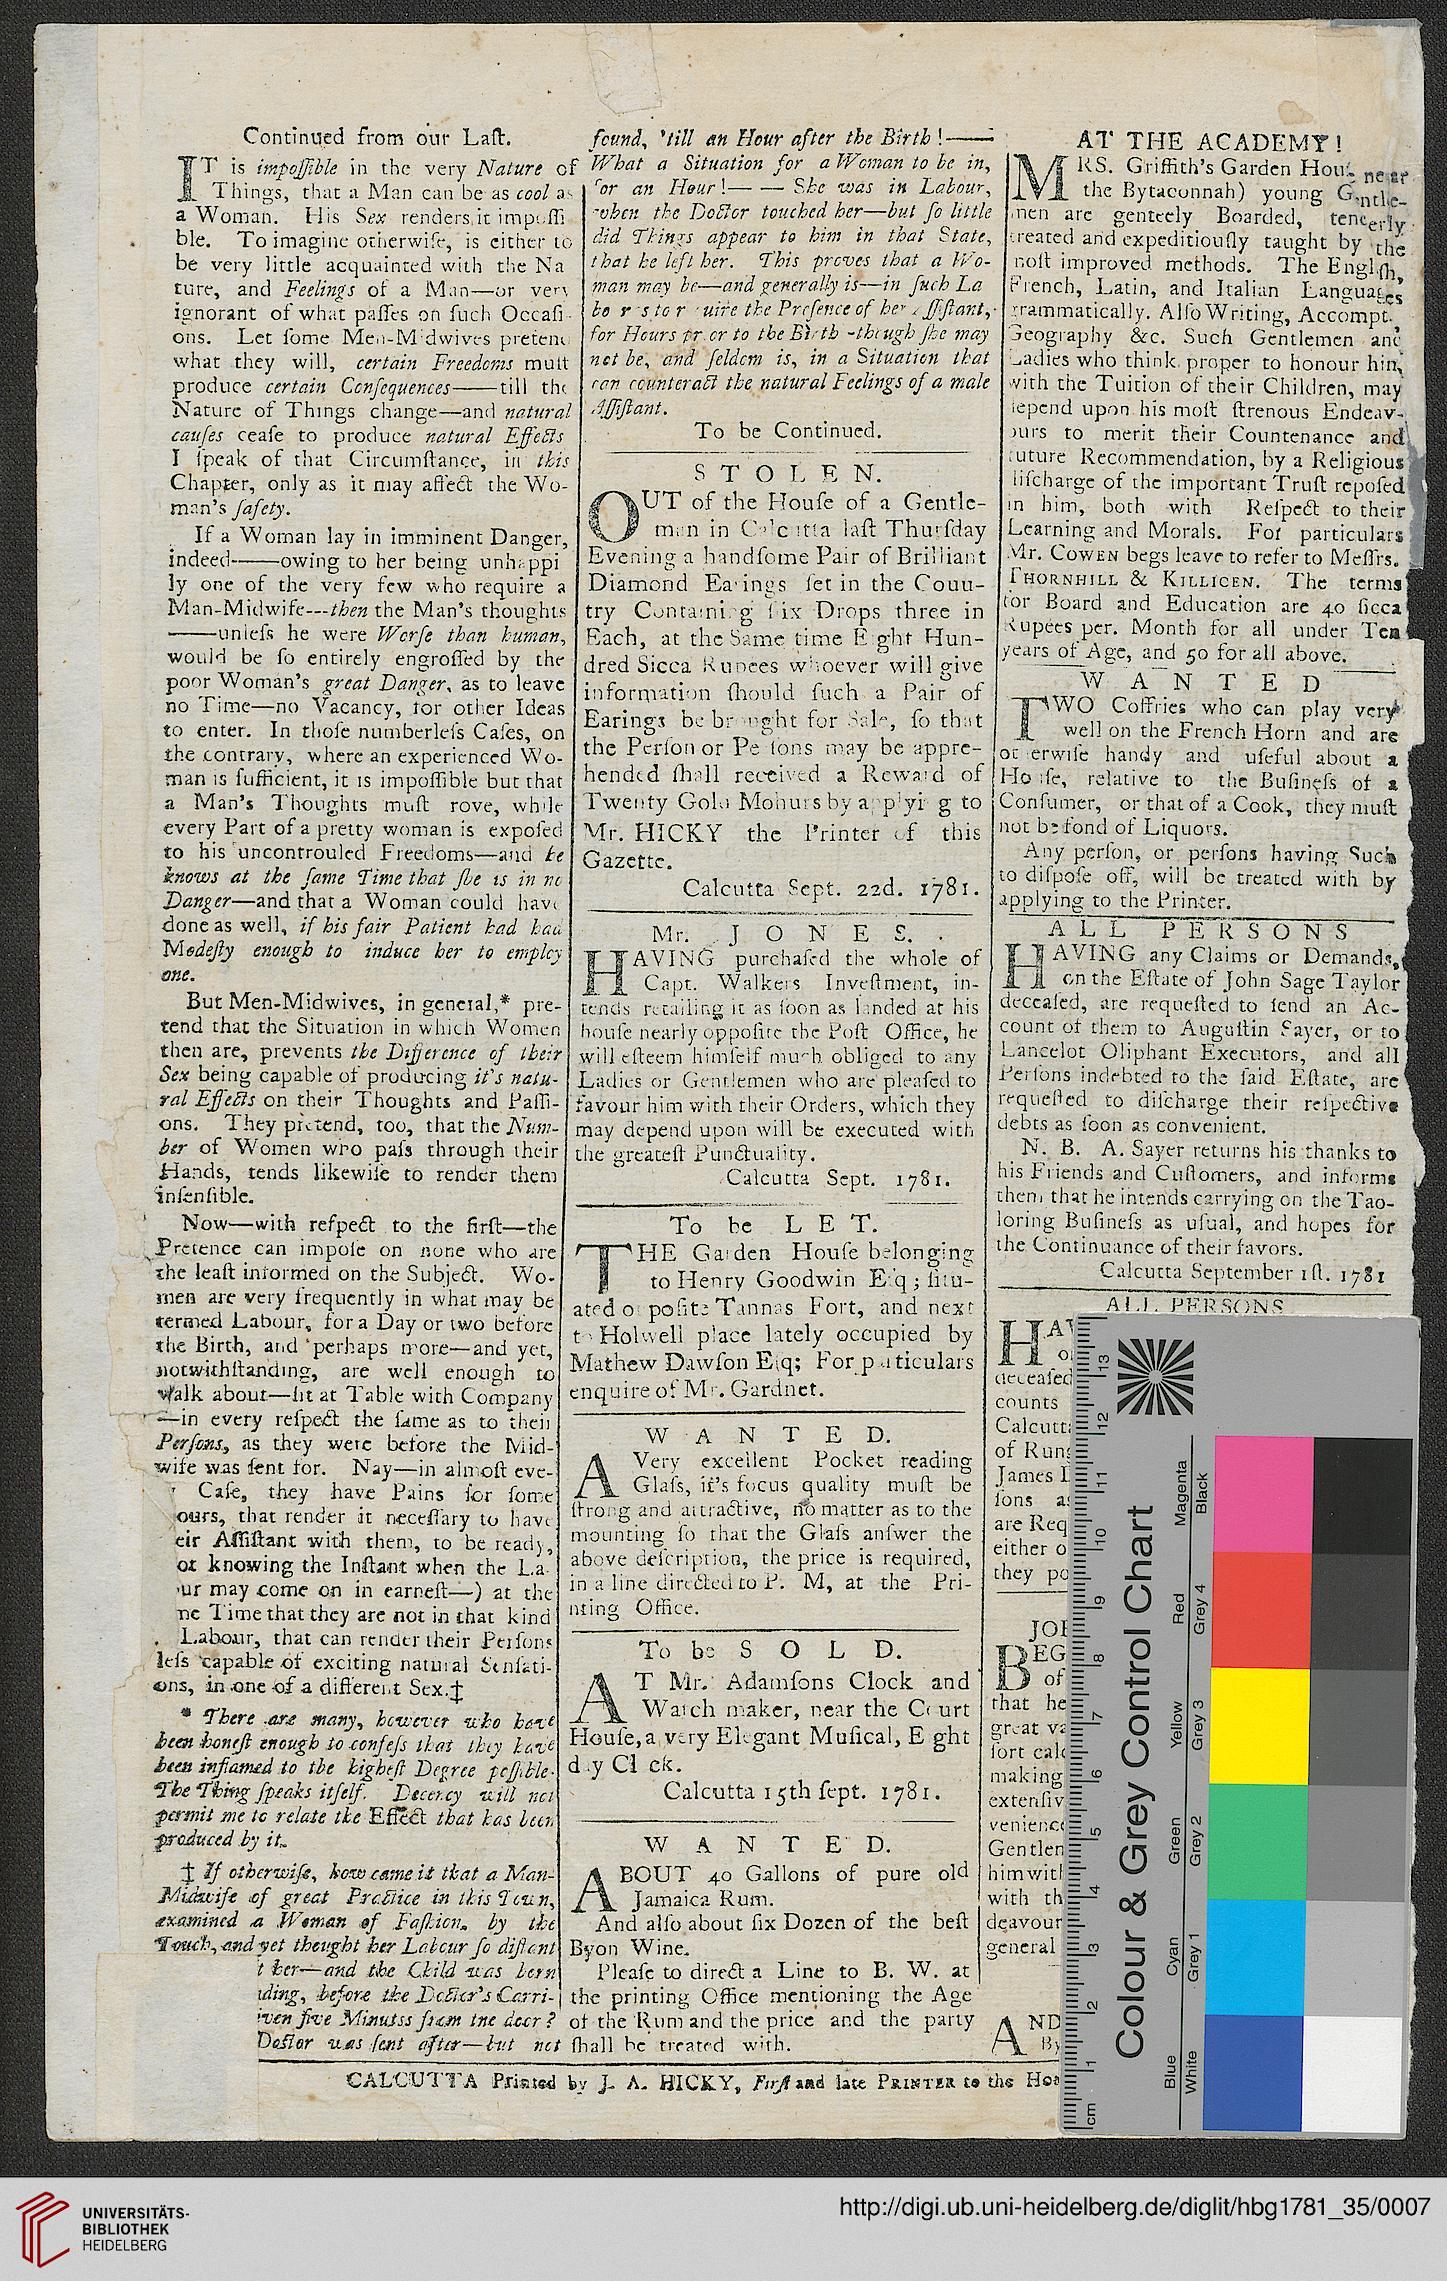 Continued from our Laſt.
IT is impoſſible in the very Nature of
Things, that a Man can be as cool as
a Woman. His Sex renders it impoſſi
ble. To imagine otherwiſe, is either to
be very little acquainted with the Na
ture, and Feelings of a Man—or very
ignorant of what paſſes on ſuch Occaſi-
ons. Let ſome Men-Midwives pretend
what they will, certain Freedoms muſt
produce certain Conſequences——till the
Nature of Things change—and natural
cauſes ceaſe to produce natural Effects
I ſpeak of that Circumſtance, in this
Chapter, only as it may affect the Wo-
man's ſafety.
If a Woman lay in imminent Danger,
indeed——owing to her being unhappi
ly one of the very few who require a
Man-Midwife---then the Man's thoughts
——unleſs he were Worſe than human,
would be ſo entirely engroſſed by the
poor Woman's great Danger, as to leave
no Time—no Vacancy, for other Ideas
to enter. In thoſe numberleſs Caſes, on
the contrary, where an experienced Wo-
man is ſufficient, it is impoſſible but that
a Man's Thoughts muſt rove, while
every Part of a pretty woman is expoſed
to his uncontrouled Freedoms—and he
knows at the ſame Time that ſhe is in no
Danger—and that a Woman could have
done as well, if his fair Patient had had
Modeſty enough to induce her to employ
one.
But Men-Midwives, in general,* pre-
tend that the Situation in which Women
then are, prevents the Difference of their
Sex being capable of producing it's natu-
ral Effects on their Thoughts and Paſſi-
ons. They pretend, too, that the Num-
ber of Women who paſs through their
Hands, tends likewiſe to render them
inſenſible.
Now—with reſpect to the firſt—the
Pretence can impoſe on none who are
the leaſt informed on the Subject. Wo-
men are very frequently in what may be
termed Labour, for a Day or two before
the Birth, and perhaps more—and yet,
notwithſtanding, are well enough to
walk about—ſit at Table with Company
—in every reſpect the ſame as to their
Perſons, as they were before the Mid-
wife was ſent for. Nay—in almoſt eve-
Caſe, they have Pains for ſome
ours, that render it neceſſary to have
eir Aſſiſtant with them, to be ready,
ot knowing the Inſtant when the La-
ur may come on in earneſt—) at the
me Time that they are not in that kind
Labour, that can render their Perſons
leſs capable of exciting natural Senſati-
ons, in one of a different Sex.‡
* There are many, however who have
been honeſt enough to confeſs that they have
been inflamed to the higheſt Degree poſſible.
The Thing ſpeaks itſelf. Decency will not
permit me to relate the Effect that has been
produced by it.
‡ If otherwiſe, how came it that a Man-
Midwife of great Practice in this Town,
examined a Woman of Faſhion, by the
Touch, and yet thought her Labour ſo diſtant
t her—and the Child was born
ding, before the Doctor's Carri-
iven five Minutss from the door?
Doctor was ſent after—but not
found, 'till an Hour after the Birth!——
What a Situation for a Woman to be in,
for an Hour!— — She was in Labour,
when the Doctor touched her—but ſo little
did Things appear to him in that State,
that he left her. This proves that a Wo-
man may be—and generally is—in ſuch La
bo r s to r uire the Preſence of her Aſſiſtant,
for Hours pr or to the Birth -though ſhe may
not be, and ſeldom is, in a Situation that
can counteract the natural Feelings of a male
Aſſiſtant.
To be Continued.
STOLEN.
OUT of the Houſe of a Gentle-
man in Calcutta laſt Thurſday
Evening a handſome Pair of Brilliant
Diamond Earings ſet in the Couu-
try Containing ſix Drops three in
Each, at the Same time Eight Hun-
dred Sicca Rupees whoever will give
information ſhould ſuch a Pair of
Earings be brought for Sale, ſo that
the Perſon or Perſons may be appre-
hended ſhall received a Reward of
Twenty Gold Mohurs by applying to
Mr. HICKY the Printer of this
Gazette.
Calcutta Sept. 22d. 1781.
Mr. JONES.
HAVING purchaſed the whole of
Capt. Walkers Inveſtment, in-
tends retailing it as ſoon as landed at his
houſe nearly oppoſite the Poſt Office, he
will eſteem himſelf much obliged to any
Ladies or Gentlemen who are pleaſed to
favour him with their Orders, which they
may depend upon will be executed with
the greateſt Punctuality.
Calcutta Sept. 1781.
To be LET.
THE Garden Houſe belonging
to Henry Goodwin Eſq; ſitu-
ated oppoſite Tannas Fort, and next
to Holwell place lately occupied by
Mathew Dawſon Eſq; For particulars
enquire of Mr. Gardnet.
WANTED.
A Very excellent Pocket reading
Glaſs, it's focus quality muſt be
ſtrong and attractive, no matter as to the
mounting ſo that the Glaſs anſwer the
above deſcription, the price is required,
in a line directed to P. M, at the Pri-
nting Office.
To be SOLD.
AT Mr. Adamſons Clock and
Watch maker, near the Court
Houſe, a very Elegant Muſical, Eight
day Clock.
Calcutta 15th ſept. 1781.
WANTED.
ABOUT 40 Gallons of pure old
Jamaica Rum.
And alſo about ſix Dozen of the beſt
Byon Wine.
Pleaſe to direct a Line to B. W. at
the printing Office mentioning the Age
of the Rum and the price and the party
ſhall be treated with.
AT THE ACADEMY!
MRS. Griffith's Garden Houſe near
the Bytaconnah) young Gentle-
men are genteely Boarded, tenderly
treated and expeditiouſly taught by the
moſt improved methods. The Engliſh,
French, Latin, and Italian Languages
grammatically. Alſo Writing, Accompt.
Geography &c. Such Gentlemen and
Ladies who think proper to honour him,
with the Tuition of their Children, may
depend upon his moſt ſtrenous Endeav-
ours to merit their Countenance and
future Recommendation, by a Religious
diſcharge of the important Truſt repoſed
in him, both with Reſpect to their
Learning and Morals. For particulars
Mr. COWEN begs leave to refer to Meſſrs.
THORNHILL & KILLICEN. The terms
for Board and Education are 40 ſicca
Rupees per. Month for all under Ten
years of Age, and 50 for all above.
WANTED
TWO Coffries who can play very
well on the French Horn and are
ot erwiſe handy and uſeful about a
Houſe, relative to the Buſineſs of a
Conſumer, or that of a Cook, they muſt
not be fond of Liquors.
Any perſon, or perſons having Such
to diſpoſe off, will be treated with by
applying to the Printer.
ALL PERSONS
HAVING any Claims or Demands,
on the Eſtate of John Sage Taylor
deceaſed, are requeſted to ſend an Ac-
count of them to Auguſtin Sayer, or to
Lancelot Oliphant Executors, and all
Perſons indebted to the ſaid Eſtate, are
requeſted to diſcharge their reſpective
debts as ſoon as convenient.
N. B. A. Sayer returns his thanks to
his Friends and Cuſtomers, and informs
them that he intends carrying on the Tao-
loring Buſineſs as uſual, and hopes for
the Continuance of their favors.
Calcutta September 1ſt. 1781
ALL PERSONS
HAV
o
deceaſed
counts
Calcutt
of Rung
James
ſons a
are Req
either o
they po
JOH
BEG
of
that he
great va
ſort cal
making
extenſiv
venience
Gentlen
him with
with th
deavour
general
AND
By
CALCUTTA Printed by J. A. HICKY, Firſt and late PRINTER to the Ho
Colour & Grey Control Chart
Magenta
Black
Red
Grey 4
Yellow
Grey 3
Green
Grey 2
Cyan
Grey 1
Blue
White
cm 1 2 3 4 5 6 7 8 9 10 11 12 13
UNIVERSITÄTS-
BIBLIOTHEK
HEIDELBERG
http://digi.ub.uni-heidelberg.de/diglit/hbg1781_35/0007